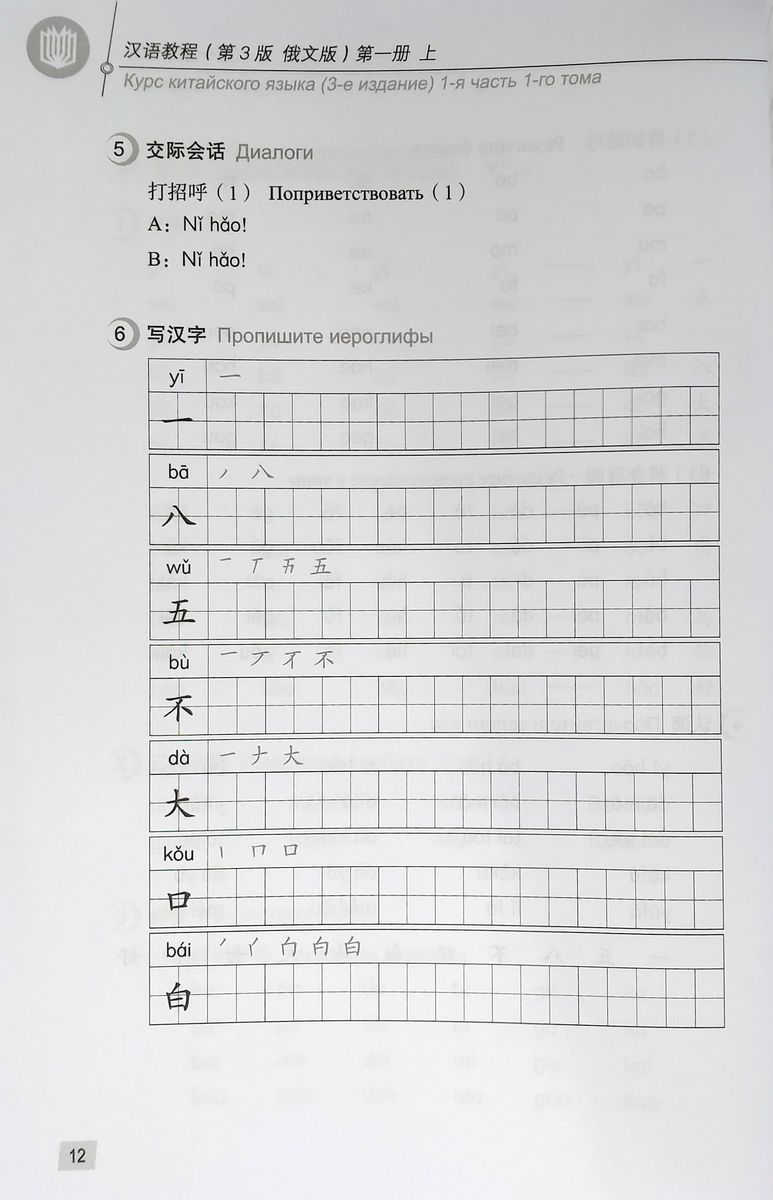 汉语教程（第3版 俄文版）第一册 上
Курс китайского языка (3-е издание) 1-я часть 1-го тома
5 交际会话 Диалоги
打招呼（1） Поприветствовать（1）
A：Nǐ hǎo!
B：Nǐ hǎo!
6 写汉字 Пропишите иероглифы
yī 一
一
bā 丿 八
八
wǔ 一 丅 五
五
bù 一 丆 不
不
dà 一 ナ 大
大
kǒu 丨 冂 口
口
bái 丿 白 白
白
12